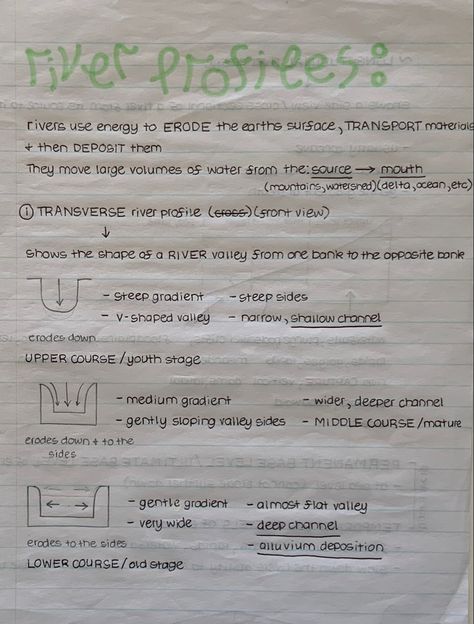 river profiles:
rivers use energy to ERODE the earths surface, TRANSPORT materials
+ then DEPOSIT them
They move large volumes of water from the: source → mouth
(mountains, watershed) (delta, ocean, etc)
① TRANSVERSE river profile (cross) (front view)
↓
shows the shape of a RIVER valley from one bank to the opposite bank
- steep gradient - steep sides
- v-shaped valley - narrow, shallow channel
erodes down
UPPER COURSE / youth stage
- medium gradient - wider, deeper channel
- gently sloping valley sides - MIDDLE COURSE / mature
erodes down + to the
sides
- gentle gradient - almost flat valley
- very wide - deep channel
erodes to the sides - alluvium deposition
LOWER COURSE / old stage